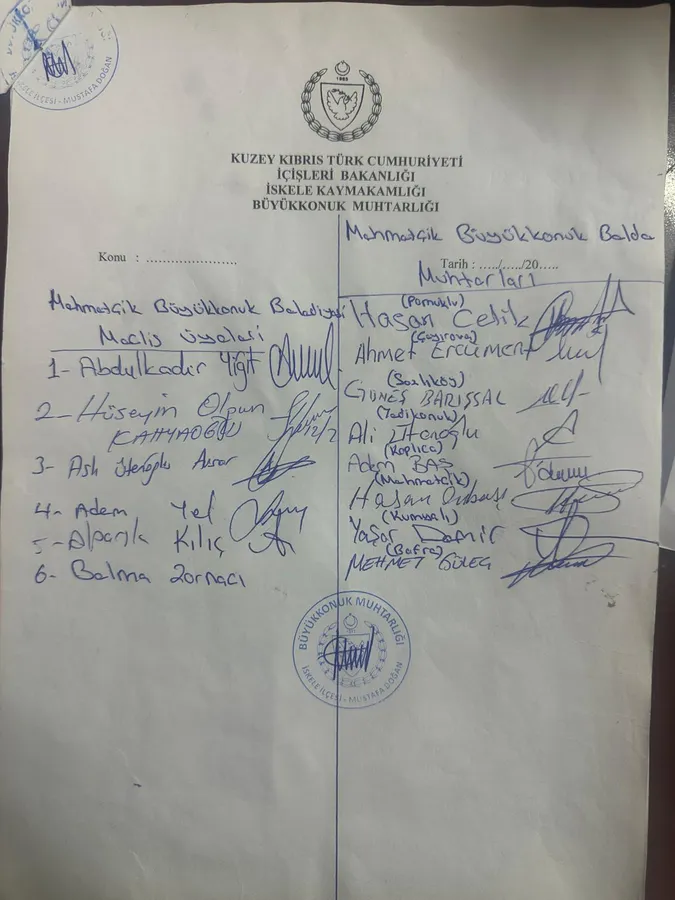 1983
KUZEY KIBRIS TÜRK CUMHURİYETİ
İÇİŞLERİ BAKANLIĞI
İSKELE KAYMAKAMLIĞI
BÜYÜKKONUK MUHTARLIĞI
Konu : ......................
Tarih : ...../...../20.....
Mehmetçik Büyükkonuk Belediyesi
Meclis üyeleri
1- Abdulkadir Yiğit
2- Hüseyin Olgun
KAHYAOĞLU
3- Aslı
4- Adem Yel
5- Alparslan Kılıç
6- Zornacı
Mehmetçik Büyükkonuk Beledi
Muhtarları
(Pamuklu)
Hasan Çelik
(Çayırova)
Ahmet ERCÜMENT
(Sazlıköy)
GÜNEŞ BARIŞSAL
(Yedikonuk)
Ali
(Kaplıca)
Adem BAŞ
(Mehmetçik)
Hasan
(Kumyalı)
Yaşar Demir
(Bafra)
MEHMET GÜLEÇ
BÜYÜKKONUK MUHTARLIĞI
İSKELE İLÇESİ - MUSTAFA DOĞAN
İLÇESİ - MUSTAFA DOĞAN